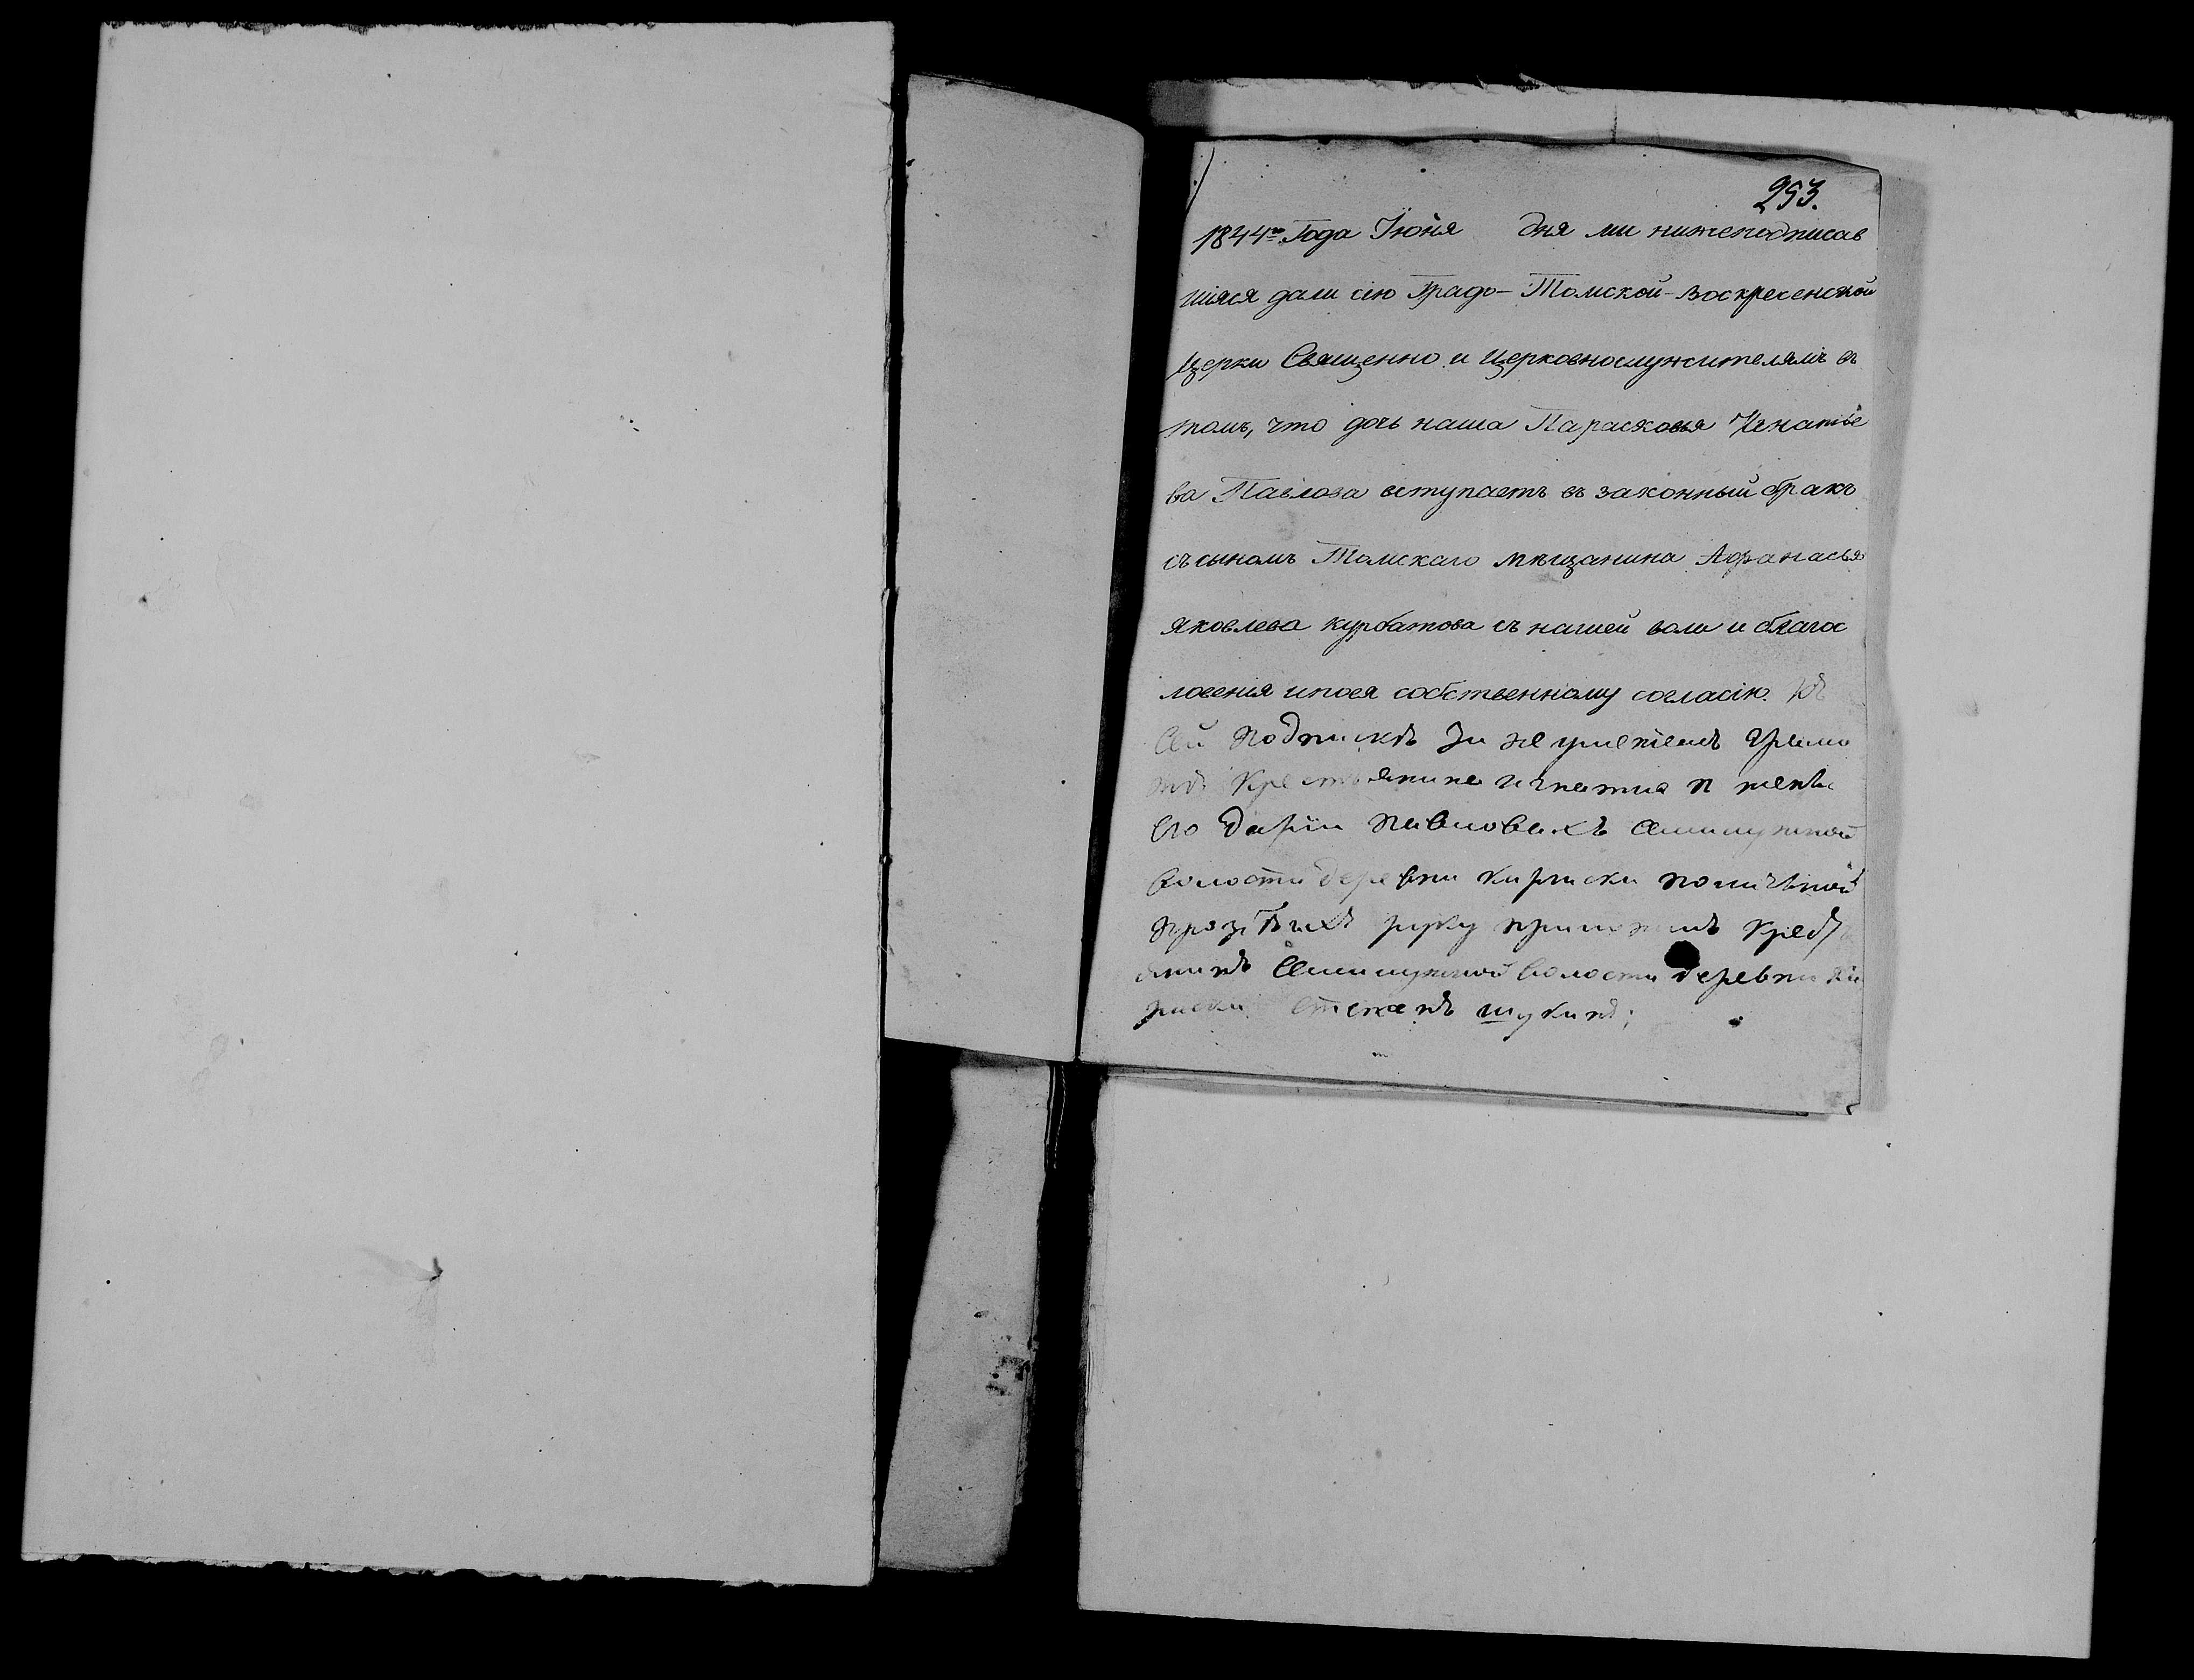 253.
1844го Года Іюня дня ми нижеподписав
шіяся дали сію Градо-Томской-Воскресенской
Церкви Священно и Церковнослужителямъ въ
томъ, что дочь наша Парасковья Игнатье
ва Павлова вступаетъ въ законный бракъ
съ сыномъ Томскаго мѣщанина Афанасья
Яковлева Курбатова съ нашей воли и благос
ловенія и поея собственному согласію. Къ
сей подпискѣ за не уметемъ грамо
тѣ Крестьянина игнатия и жены
его дарïи павловыхъ Семилужной
волости деревни кирпски поличьной
прозбѣ ихъ руку приложилъ Крест
янинъ Семилужной волости деревни Ки
рпски Степанъ шукинъ;